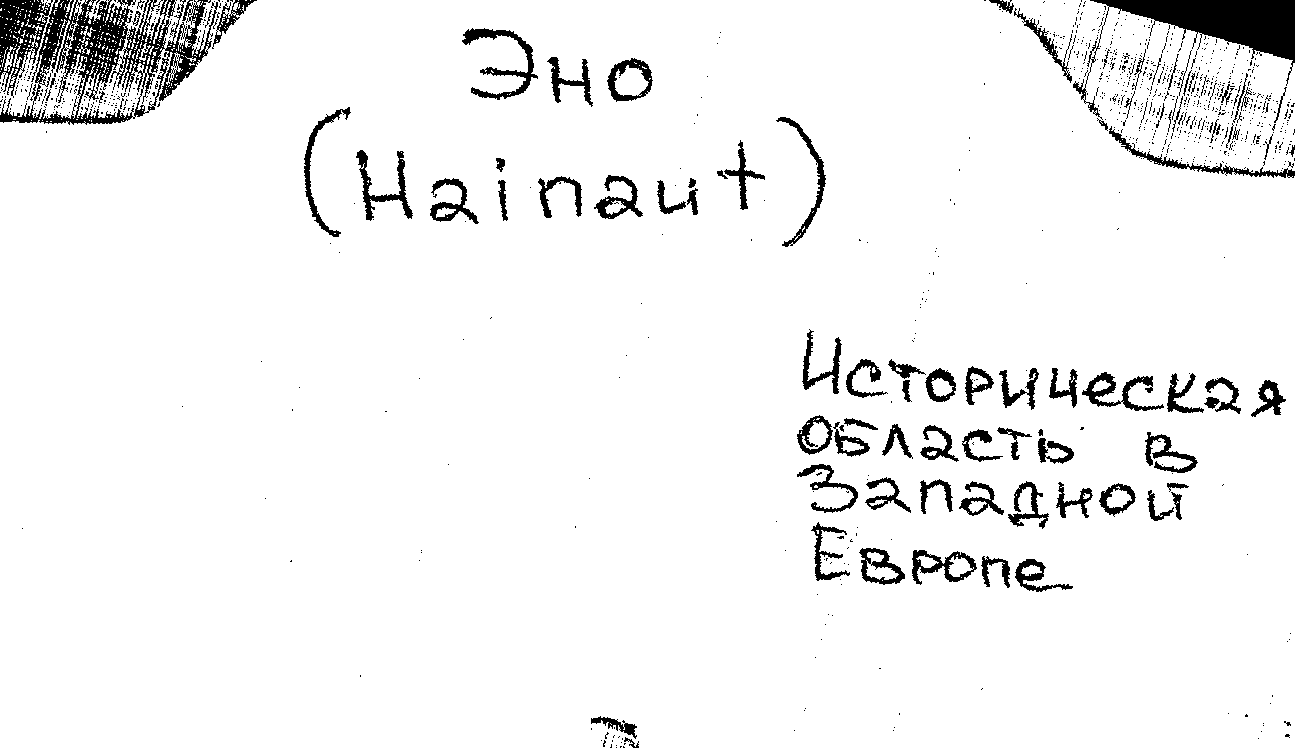 Эно
(Hainaut)
Историческая
область в
Западной
Европе